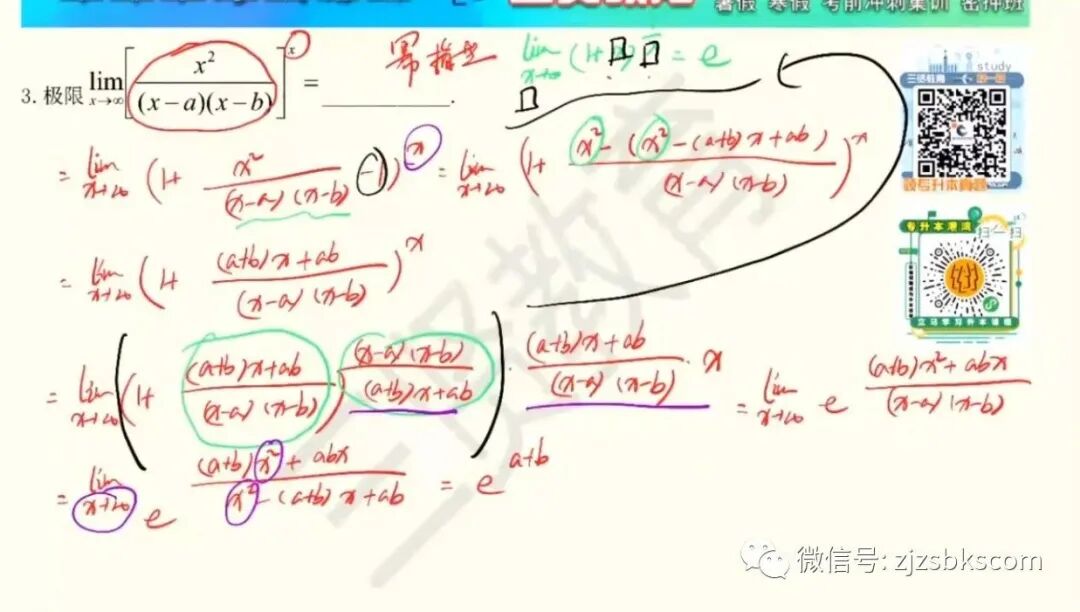 暑假 寒假 考前冲刺集训 密押班
3.极限 lim x→∞ [x²/((x−a)(x−b))]^x = ________.
幂指型
lim x→∞ (1+□)^□ = e
= lim x→∞ (1+ x²/((x−a)(x−b)) −1)^x = lim x→∞ (1+ (x²−(x²−(a+b)x+ab))/((x−a)(x−b)))^x
= lim x→∞ (1+ ((a+b)x+ab)/((x−a)(x−b)))^x
= lim x→∞ (1+ ((a+b)x+ab)/((x−a)(x−b)))^((x−a)(x−b)/((a+b)x+ab)) · ((a+b)x+ab)/((x−a)(x−b)) · x = lim x→∞ e^(((a+b)x²+abx)/((x−a)(x−b)))
= lim x→∞ e^(((a+b)x²+abx)/(x²−(a+b)x+ab)) = e^(a+b)
study
三贤教育
扫一扫
专升本港湾
扫一扫
三贤教育
微信号: zjzsbkscom